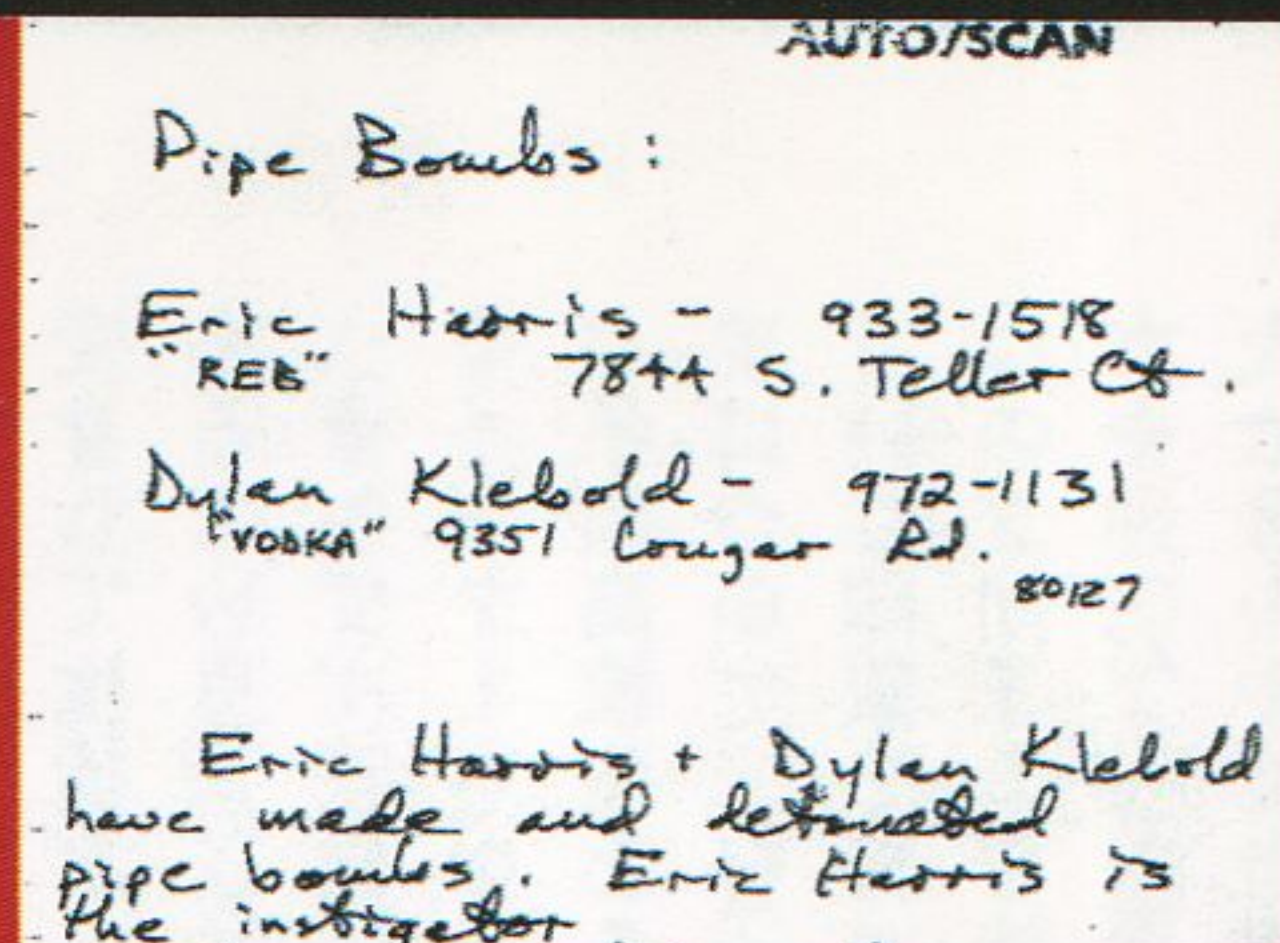 AUTO/SCAN
Pipe Bombs :
Eric Harris - 933-1518
"REB" 7844 S. Teller Ct.
Dylan Klebold - 972-1131
"VODKA" 9351 Cougar Rd.
80127
Eric Harris + Dylan Klebold
have made and detonated
pipe bombs. Eric Harris is
the instigator